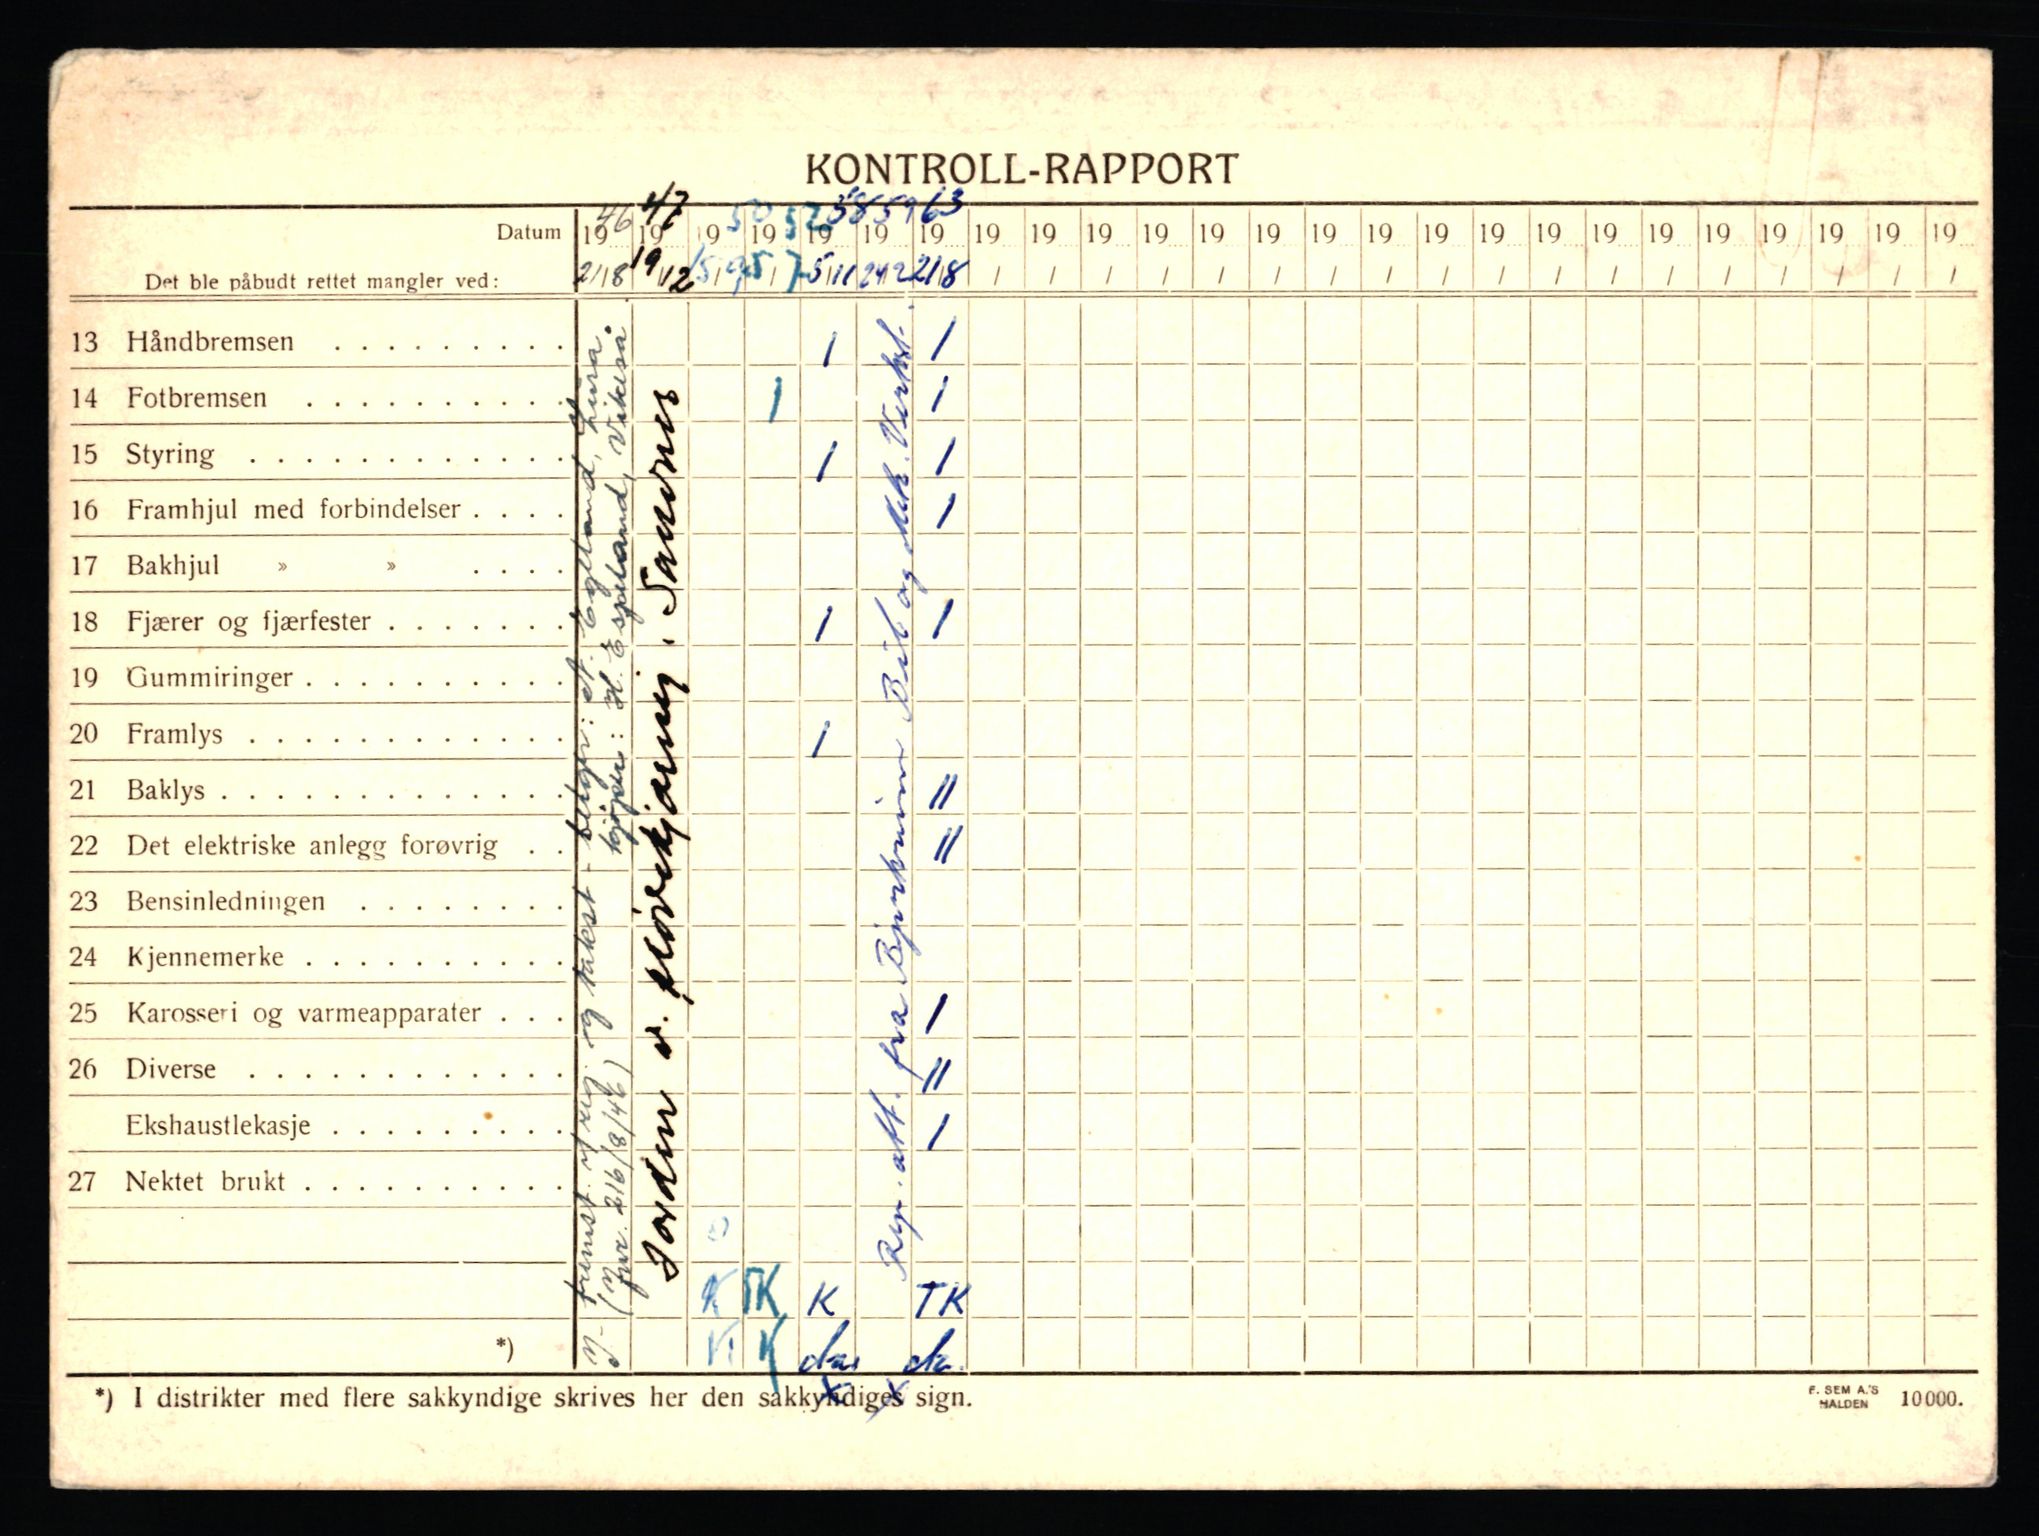 KONTROLL-RAPPORT
Datum 1946 1947 19 50 19 52 19 58 19 59 19 63 19 19 19 19 19 19 19 19 19 19 19 19 19 19 19 19 19 19
Det ble påbudt rettet mangler ved: 21/8 19/12 15/9 5/7 5/11 24/2 21/8 / / / / / / / / / / / / / / / / / /
13 Håndbremsen . . . . . . . . . I I
14 Fotbremsen . . . . . . . . . . I I
15 Styring . . . . . . . . . . . . I I
16 Framhjul med forbindelser . . . . I
17 Bakhjul » » . . . .
18 Fjærer og fjærfester . . . . . . . I I
19 Gummiringer . . . . . . . . . .
20 Framlys . . . . . . . . . . . . I
21 Baklys . . . . . . . . . . . . . II
22 Det elektriske anlegg forøvrig . . II
23 Bensinledningen . . . . . . . . .
24 Kjennemerke . . . . . . . . . .
25 Karosseri og varmeapparater . . . I
26 Diverse . . . . . . . . . . . . II
Ekshaustlekasje . . . . . . . . . I
27 Nektet brukt . . . . . . . . . .
fremst. og takst - selger: Egeland, Lura.
216/8/46) kjøper: H. Espeland, Vikeså.
v. Sandnes
Rep. att. fra Bjerkreim Bil og Mek. Verkst.
K TK K TK
K
*)
*) I distrikter med flere sakkyndige skrives her den sakkyndiges sign.
F. SEM A.'S
HALDEN 10 000.